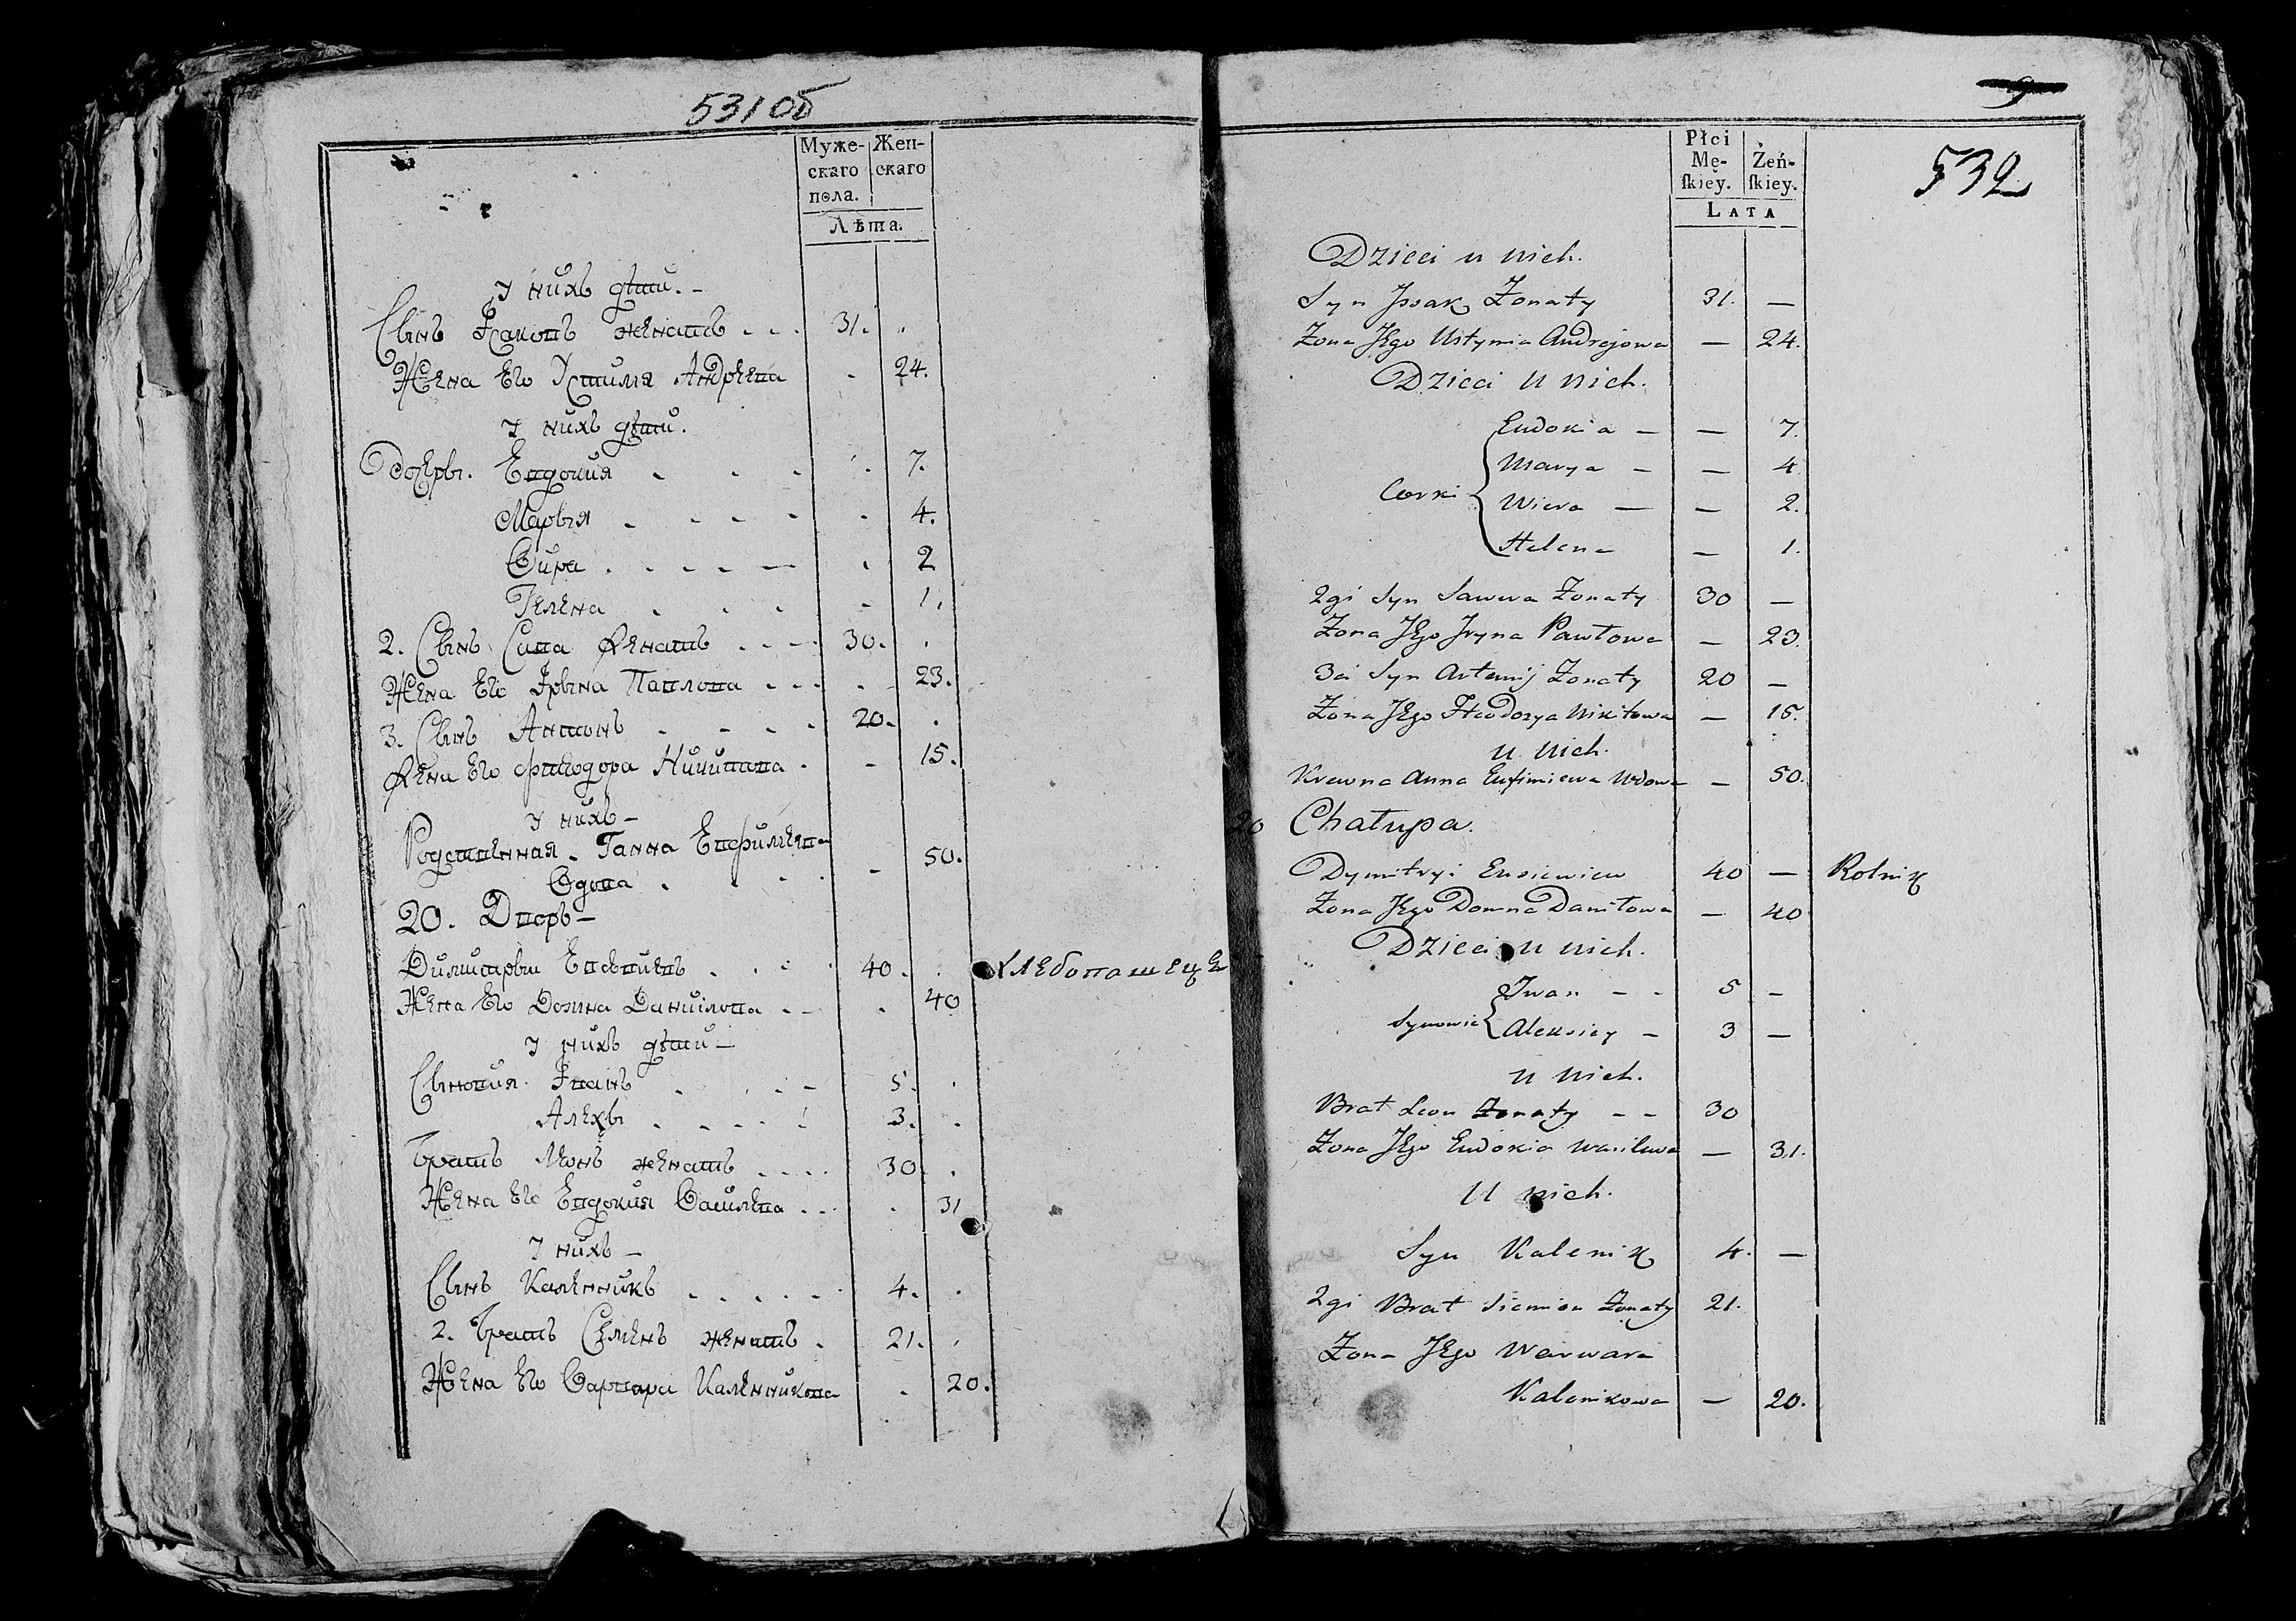 531об
Муже- Жен-
скаго скаго
пола.
Лѣта.
У нихъ дѣти. -
Сынъ Ісакъ женатъ 31.
Жена Его Устимя Андрѣева 24.
У нихъ дѣти.
Дочеры. Евдокия 7.
Марыя 4.
Вира 2
Гелена 1.
2. Сынъ Сава женатъ 30.
Жена Его Ірына Павлова 23.
3. Сынъ Антонъ 20.
Жена Его Фтеодора Никитова 15.
У нихъ -
Родственная. Ганна Евфимѣва
Вдова 50.
20. Дворъ -
Димитры Евсѣвиевъ 40. хлебопашецъ
Жена Его Домна Данилова 40
У нихъ дѣти -
Сыновия. Іванъ 5.
Алехы 3.
Братъ Леонъ женатъ 30.
Жена Его Евдокия Василева 31
У нихъ -
Сынъ Каленникъ 4.
2. Братъ Семенъ женатъ 21.
Жена Его Варвара Каленникова 20.
9
532
Płci
Mę- Żeń-
ſkiey. ſkiey.
LATA
Dzieci u nich.
Syn Jssak Żonaty 31. —
Żona Jego Ustymia Andrejowa — 24.
Dzieci u nich.
Corki
Eudokia — — 7.
Marya — — 4
Wiera — — 2.
Helena — 1.
2gi Syn Sawwa Żonaty 30 —
Żona Jego Jryna Pawłowa — 23.
3ci Syn Artemij Żonaty 20 —
Żona Jego Fteodozya Nikitowa — 15.
u nich.
Krewna Anna Eufimiewa Wdowa — 50.
20 Chałupa.
Dymitryi Eusiewiew 40 — Rolnik
Żona Jego Domna Daniłowa — 40
Dzieci u nich.
Synowie
Jwan - - 5 —
Aleksiey — 3 —
u nich.
Brat Leon Żonaty - - 30
Żona Jego Eudokia Wasilewa — 31.
U nich.
Syn Kalenik 4. —
2gi Brat Siemion Żonaty 21.
Żona Jego Warwara
Kalenikowa — 20.